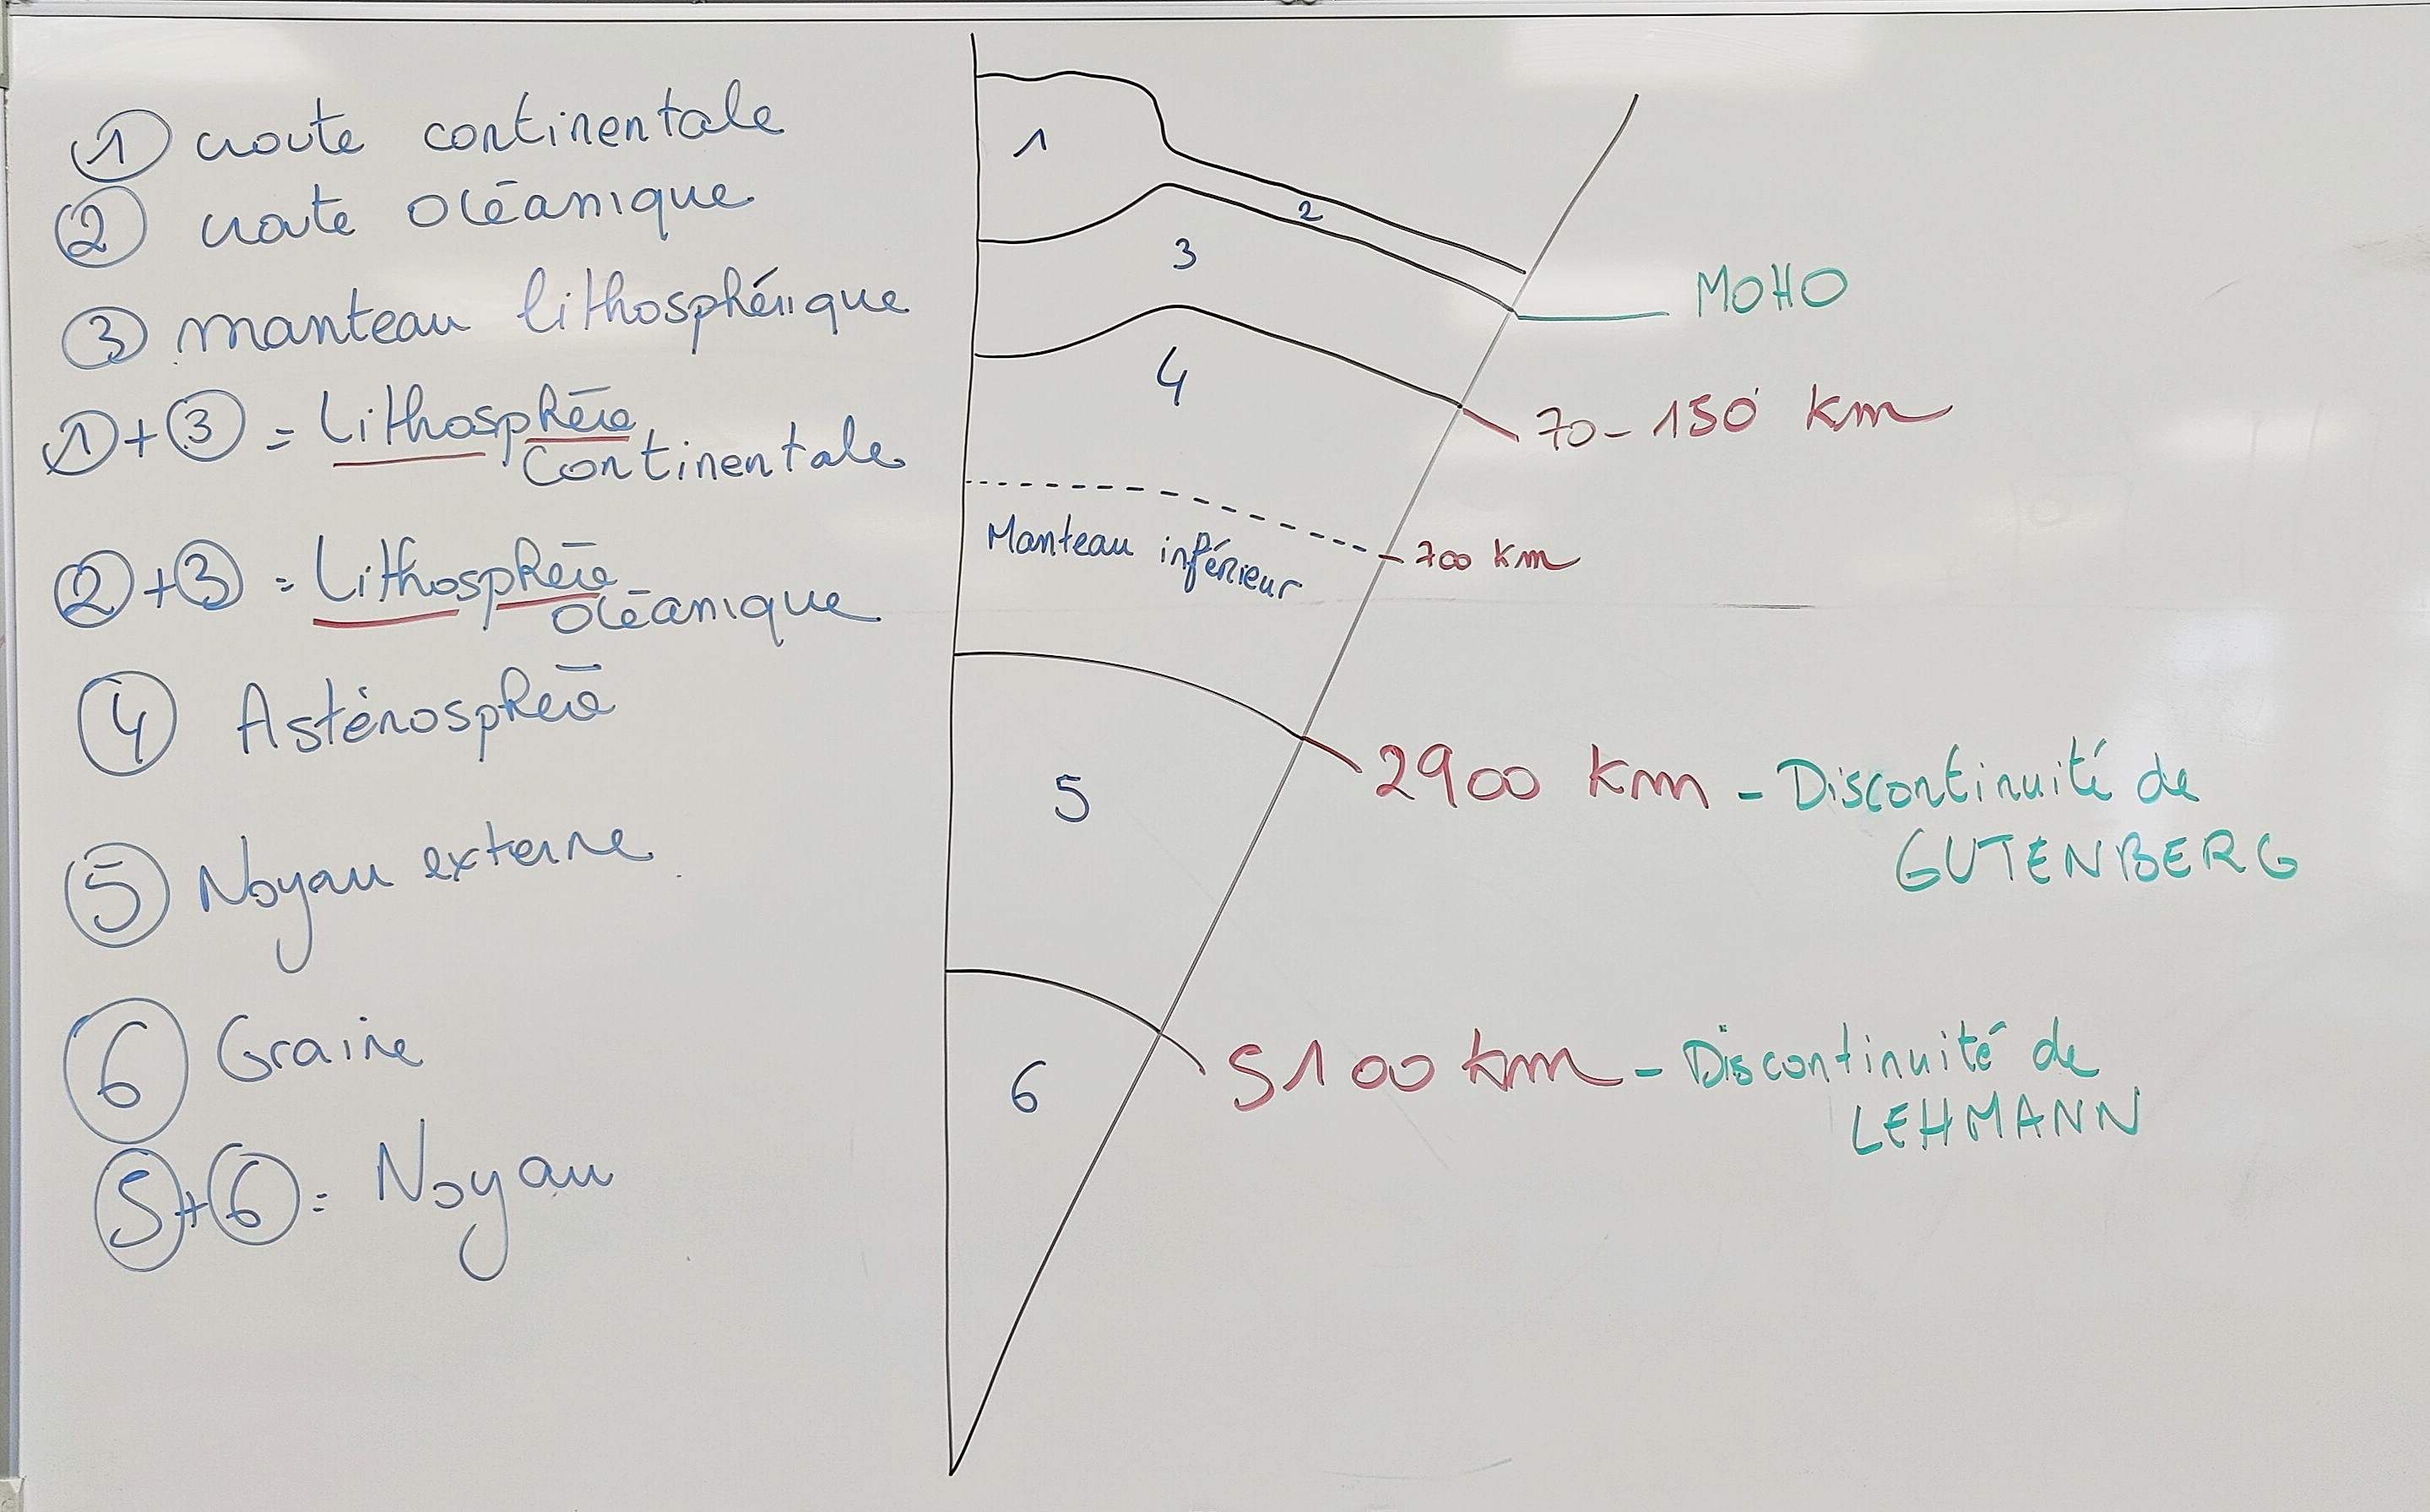 ① croute continentale
② croute océanique
③ manteau lithosphérique
①+③ = Lithosphère
continentale
②+③ = Lithosphère
océanique
④ Asténosphère
⑤ Noyau externe
⑥ Graine
⑤+⑥ = Noyau
1
2
3
MOHO
4
70-150 km
700 km
Manteau inférieur
2900 km - Discontinuité de
GUTENBERG
5
5100 km - Discontinuité de
LEHMANN
6